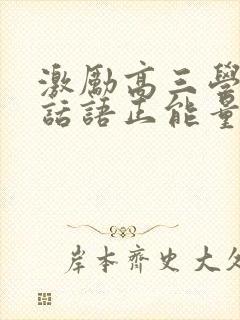 激励高三學
話語正能量
岸本齊史大